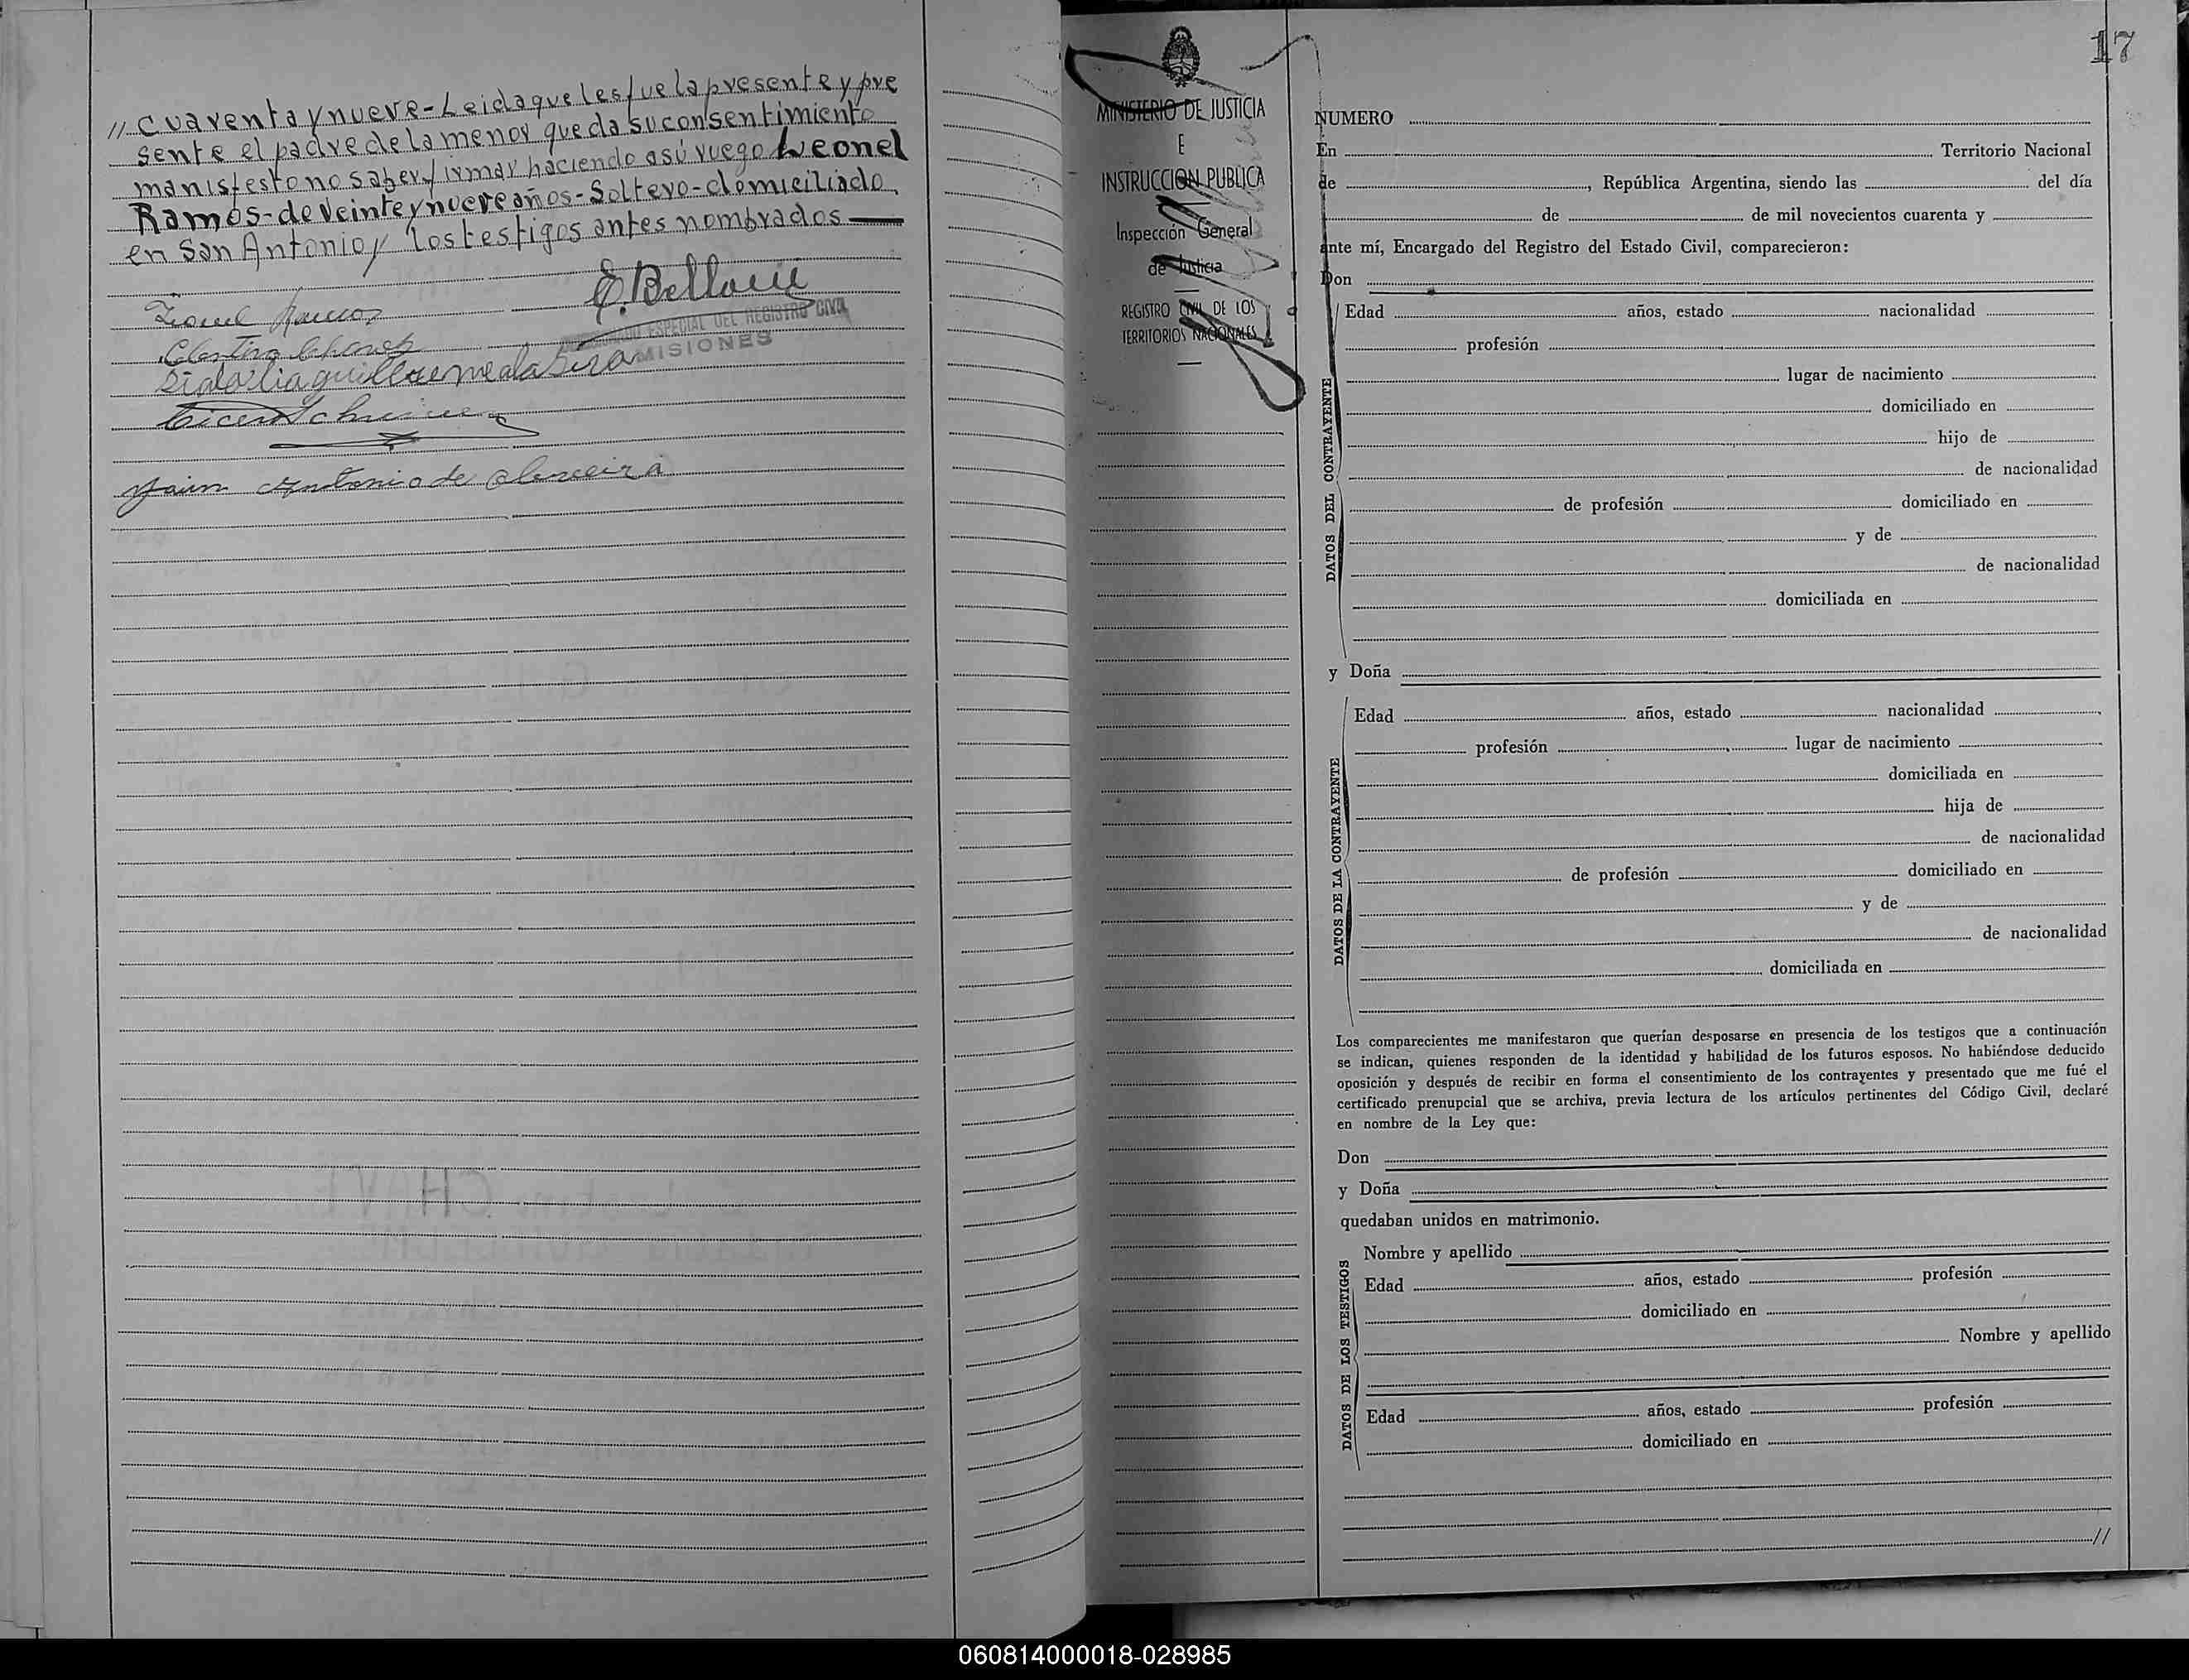 // Cuarenta y nueve - Leida que les fue la presente y pre
sente el padre de la menor que da su consentimiento
manifesto no saber firmar haciendo a sú ruego Leonel
Ramos - de Veinte y nueve años - Soltero - domiciliado
en San Antonio y los testigos antes nombrados
E. Belloni
ESPECIAL DEL REGISTRO CIVIL
MISIONES
Leonel Ramos
Antonio de Oliveira
MINISTERIO DE JUSTICIA
E
INSTRUCCION PUBLICA
Inspección General
de Justicia
REGISTRO CIVIL DE LOS
TERRITORIOS NACIONALES
17
NUMERO
En Territorio Nacional
de , República Argentina, siendo las del día
de de mil novecientos cuarenta y
ante mí, Encargado del Registro del Estado Civil, comparecieron:
Don
DATOS DEL CONTRAYENTE
Edad años, estado nacionalidad
profesión
lugar de nacimiento
domiciliado en
hijo de
de nacionalidad
de profesión domiciliado en
y de
de nacionalidad
domiciliada en
y Doña
DATOS DE LA CONTRAYENTE
Edad años, estado nacionalidad
profesión lugar de nacimiento
domiciliada en
hija de
de nacionalidad
de profesión domiciliado en
y de
de nacionalidad
domiciliada en
Los comparecientes me manifestaron que querían desposarse en presencia de los testigos que a continuación
se indican, quienes responden de la identidad y habilidad de los futuros esposos. No habiéndose deducido
oposición y después de recibir en forma el consentimiento de los contrayentes y presentado que me fué el
certificado prenupcial que se archiva, previa lectura de los artículos pertinentes del Código Civil, declaré
en nombre de la Ley que:
Don
y Doña
quedaban unidos en matrimonio.
DATOS DE LOS TESTIGOS
Nombre y apellido
Edad años, estado profesión
domiciliado en
Nombre y apellido
Edad años, estado profesión
domiciliado en
//
060814000018-028985